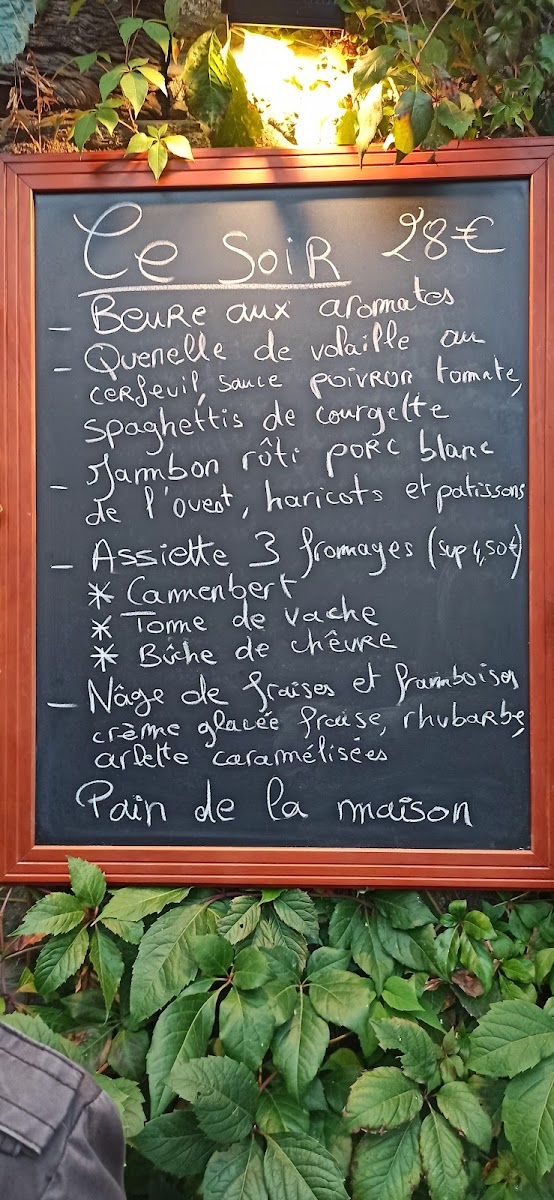 Ce Soir 28€
- Beure aux aromates
- Quenelle de volaille au
cerfeuil, sauce poivron tomate,
spaghettis de courgette
- Jambon rôti porc blanc
de l'ouest, haricots et patissons
- Assiette 3 fromages (sup 4,50€)
* Camenbert
* Tome de vache
* Bûche de chêvre
- Nâge de fraises et framboises
crème glacée fraise, rhubarbe,
arlette caramélisées
Pain de la maison